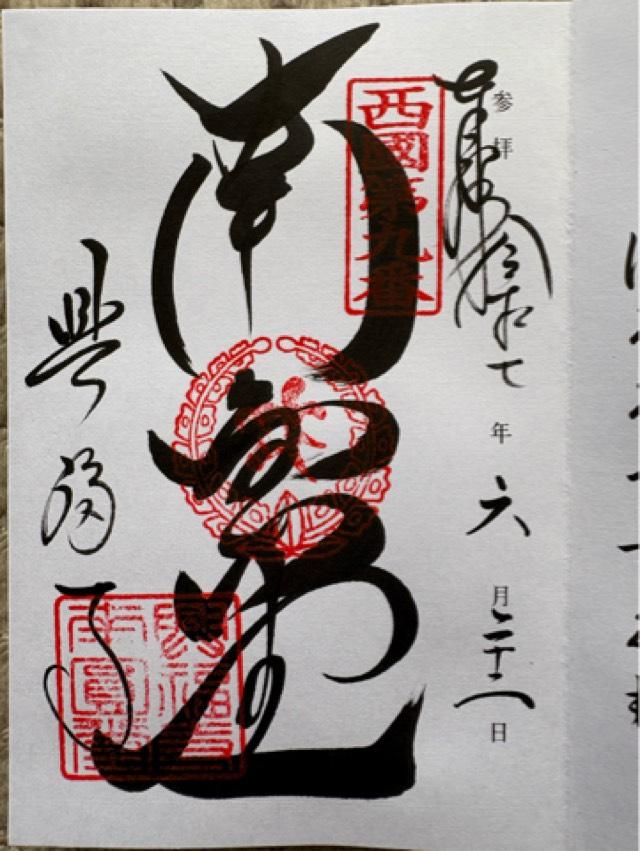 参拝
奉拝 令和七年六月二十八日
西國第九番
南圓堂
興福寺